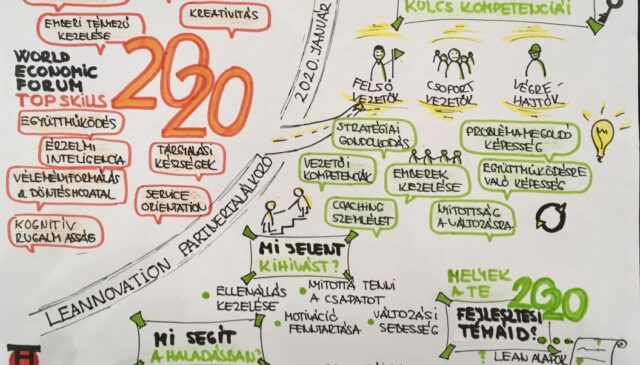 EMBERI TÉNYEZŐ
KEZELÉSE
KREATIVITÁS
WORLD
ECONOMIC
FORUM
TOP SKILLS
2020
EGYÜTTMŰKÖDÉS
ÉRZELMI
INTELIGENCIA
VÉLEMÉNFORMÁLÁS
& DÖNTÉSHOZATAL
KOGNITÍV
RUGALMASSÁG
TÁRGYALÁSI
KÉSZSÉGEK
SERVICE
ORIENTATION
LEANNOVATION PARTNERTALÁLKOZÓ
2020. JANUÁR
KULCS KOMPETENCIÁI
FELSŐ
VEZETŐK
CSOPORT
VEZETŐK
VÉGRE-
HAJTÓK
STRATÉGIAI
GONDOLKODÁS
VEZETŐI
KOMPETENCIÁK
EMBEREK
KEZELÉSE
COACHING
SZEMLÉLET
PROBLÉMA MEGOLDÓ
KÉPESSÉG
EGYÜTTMŰKÖDÉSRE
VALÓ KÉPESSÉG
NYITOTTSÁG
A VÁLTOZÁSRA
MI JELENT
KIHÍVÁST?
ELLENÁLLÁS
KEZELÉSE
NYITOTTÁ TENNI
A CSAPATOT
MOTIVÁCIÓ
FENNTARTÁSA
VÁLTOZÁSI
SEBESSÉG
MI SEGÍT
A HALADÁSBAN?
MELYEK
A TE
2020
FEJLESZTÉSI
TÉMÁID?
LEAN ALAPOK